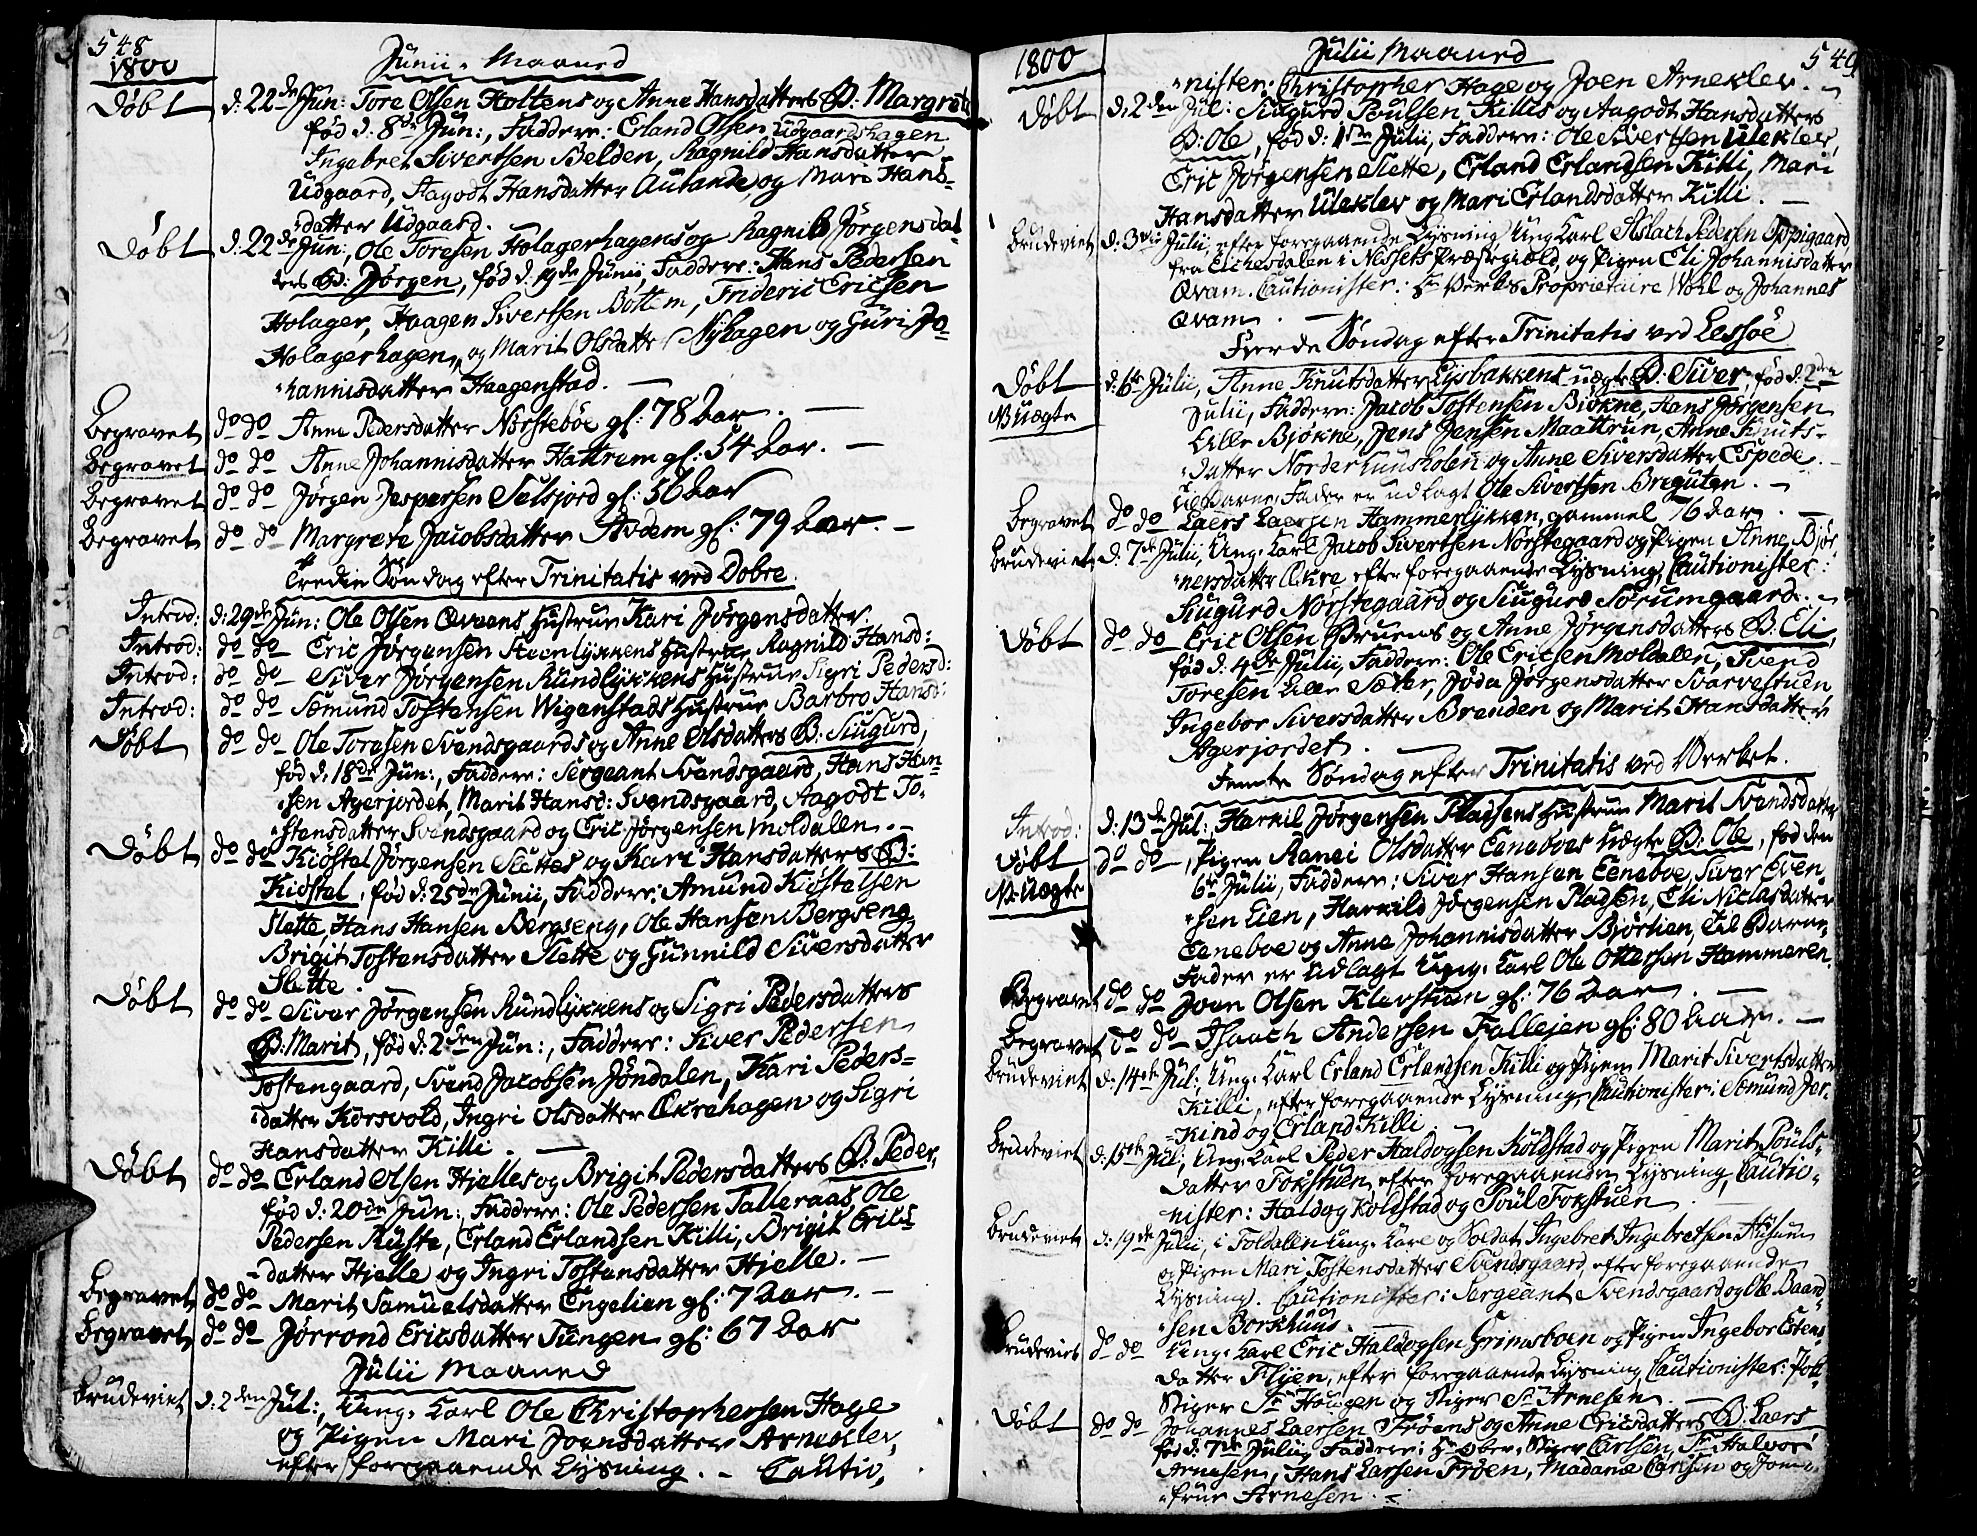 548
1800
Junii Maaned
Døbt d: 22de Jun: Tore Olsen Holtens og Anne Hansdatters B: Margrete
fød d: 8de Jun:, Faddere: Erland Olsen Udgaardshagen
Ingebret Sivertsen Belden, Ragnild Hansdatter
Udgaard, Aagodt Hansdatter Aulande, og Mari Hans-
datter Udgaard.
Døbt d: 22de Jun:, Ole Toresen Holagerhagens og Ragnild Jørgensdat-
ters B: Jørgen, fød d: 19de Junii, Faddere: Hans Pedersen
Holager, Haagen Sivertsen Bottem, Frideric Ericsen
Holagerhagen, og Marit Olsdatter Nyhagen og Guri Jo-
hannisdatter Haagenstad.
Begravet do do Anne Pedersdatter Norsteboe gl: 78 Aar.
Begravet do do Anne Johannisdatter Hattrem gl: 54 Aar.
Begravet do do Jørgen Jespersen Selsjord gl: 56 Aar
Begravet do do Margrete Jacobsdatter Avdem gl: 79 Aar.
Tredie Søndag efter Trinitatis ved Dobre.
Introd: d: 29de Jun: Ole Olsen Qvaans Hustrue Kari Jørgensdatter.
Introd: do do Eric Jørgensen Steenlykkens Hustrue Ragnild Hansd:
Introd: do do Siver Jørgensen Rundlykkens Hustrue Sigri Pedersd:
Introd: do do Semund Tostensen Wigenstads Hustrue Barbro Hansd:
Døbt do do Ole Toresen Svendsgaards og Anne Olsdatters B: Siugurd,
fød d: 18de Jun:, Faddere: Sergeant Svendsgaard, Hans Han-
sen Agerjordet, Marit Hansd: Svendsgaard, Aagodt To-
stensdatter Svendsgaard og Eric Jørgensen Moldalen.
Døbt do do Kiøstel Jørgensen Slettes og Kari Hansdatters B:
Kiøstel, fød d: 25de Junii, Faddere: Amund Kiøstelsen
Slette, Hans Hansen Bergseng, Ole Hansen Bergseng,
Brigit Tostensdatter Slette og Gunnild Siversdatter
Slette.
Døbt do do Siver Jørgensen Rundlykkens og Sigri Pedersdatters
B: Marit, fød d: 2den Jun:, Faddere: Siver Pedersen
Tostengaard, Svend Jacobsen Jøndalen, Kari Peders-
datter Korsvold, Ingri Olsdatter Œkrehagen og Sigri
Hansdatter Killi.
Døbt do do Erland Olsen Hjelles og Brigit Pedersdatters B: Peder,
fød d: 20de Jun:, Faddere: Ole Pedersen Talleraas, Ole
Pedersen Ruste, Erland Erlandsen Killi, Brigit Erics-
datter Hjelle og Ingri Tostensdatter Hjelle.
Begravet do do Marit Samuelsdatter Engelien gl: 7 Aar.
Begravet do do Jørrond Ericsdatter Tungen gl: 67 Aar
Julii Maaned
Brudeviet d: 2den Jul:, Ung. Karl Ole Christophersen Hage
og Pigen Mari Joensdatter Arneklev,
efter foregaaende Lysning. Cautio-
1800
Julii Maaned
549
nister: Christopher Hage og Joen Arneklev.
Døbt d: 2den Jul: Siugurd Poulsen Killis og Aagodt Hansdatters
B: Ole, fød d: 1ste Julii, Faddere: Ole Sivertsen Uleklev,
Eric Jørgensen Slette, Erland Erlandsen Killi, Mari
Hansdatter Uleklev og Mari Erlandsdatter Killi.
Brudeviet d: 3die Julii, efter foregaaende Lysning, Ung Karl Aslach Pedersen Oppigaard,
fra Eichesdalen i Nessets Præstegield, og Pigen Eli Johannisdatter
Qvam. Cautionister: Hr Verks Proprietaire Wohl og Johannes
Qvam.
Fierde Søndag efter Trinitatis ved Lessøe
Døbt d: 6te Julii, Anne Knutsdatter Lysbakkens uægte B: Siver, fød d: 2den
B: Uægte Julii, Faddere: Jacob Tostensen Biøkne, Hans Jørgensen
Lille Bjøkne, Jens Jensen Maattrun, Anne Knuts-
datter Norderhuusholen og Anne Siversdatter Espede.
Til Barne Fader er udlagt Ole Sivertsen Breguten.
Begravet do do Laers Laersen Hammerlykken, gammel 76 Aar.
Brudeviet d: 7de Julii, Ung. Karl Jacob Sivertsen Norstegaard og Pigen Anne Bjør-
nersdatter Œkre efter foregaaende Lysning, Cautionister:
Siugurd Norstegaard og Siugurd Sørumgaard.
Døbt do do Eric Olsen Bruens og Anne Jørgensdatters B: Eli,
fød d: 4de Julii, Faddere: Ole Ericsen Moldalen, Svend
Toresen Lille Sæter, Jøda Jørgensdatter Svarvestuen,
Ingebor Siversdatter Brenden og Marit Hansdatter
Agerjordet.
Femte Søndag efter Trinitatis ved Verket.
Introd: d: 13de Jul:, Harkil Jørgensen Pladsens Hustrue Marit Svendsdatter
Døbt do do, Pigen Ranei Olsdatter Eeneboes uægte B: Ole, fød den
B: Uægte 6te Julii, Faddere: Siver Hansen Eeneboe, Siver Even-
sen Lien, Harkild Jørgensen Pladsen, Eli Niclasdatter
Eeneboe og Anne Johannisdatter Bjørlien, Til Barne
Fader er udlagt Ung. Karl Ole Ottersen Hammeren.
Begravet do do Joen Olsen Klevstuen gl: 76 Aar.
Begravet do do Isaach Andersen Fallejen gl: 80 Aar.
Brudeviet d: 14de Jul:, Ung. Karl Erland Erlandsen Killi og Pigen Marit Sivertsdatter
Killi, efter foregaaende Lysning, Cautionister: Semund Jer-
kind og Erland Killi.
Brudeviet d: 15de Jul:, Ung. Karl Peder Haldogsen Koldstad og Pigen Marit Pouls-
datter Fokstuen, efter foregaaende Lysning, Cautio-
nister: Haldog Koldstad og Poul Fokstuen
Brudeviet d: 19de Julii, i Foldalen Ung. Karl og Soldat Ingebret Ingebretsen Husum
og Pigen Mari Tostensdatter Svendsgaard, efter foregaaende
Lysning. Cautionister: Sergeant Svendsgaard og Ole Baard-
sen Borkhuus.
Brudeviet do do Ung. Karl Eric Haldogsen Grimsboen og Pigen Ingebor Estens-
datter Flyen, efter foregaaende Lysning, Cautionister:
Stiger Sr Hougen og Stiger Sr Arnesen
Døbt do do Johannes Laersen Frøens og Anne Ericsdatters B: Laers
fød d: 7de Julii, Faddere: Hr Ober Stiger Carlsen, Sr Halvor
Arnesen, Hans Larsen Frøen, Madame Carlsen og Jom-
frue Arnesen.